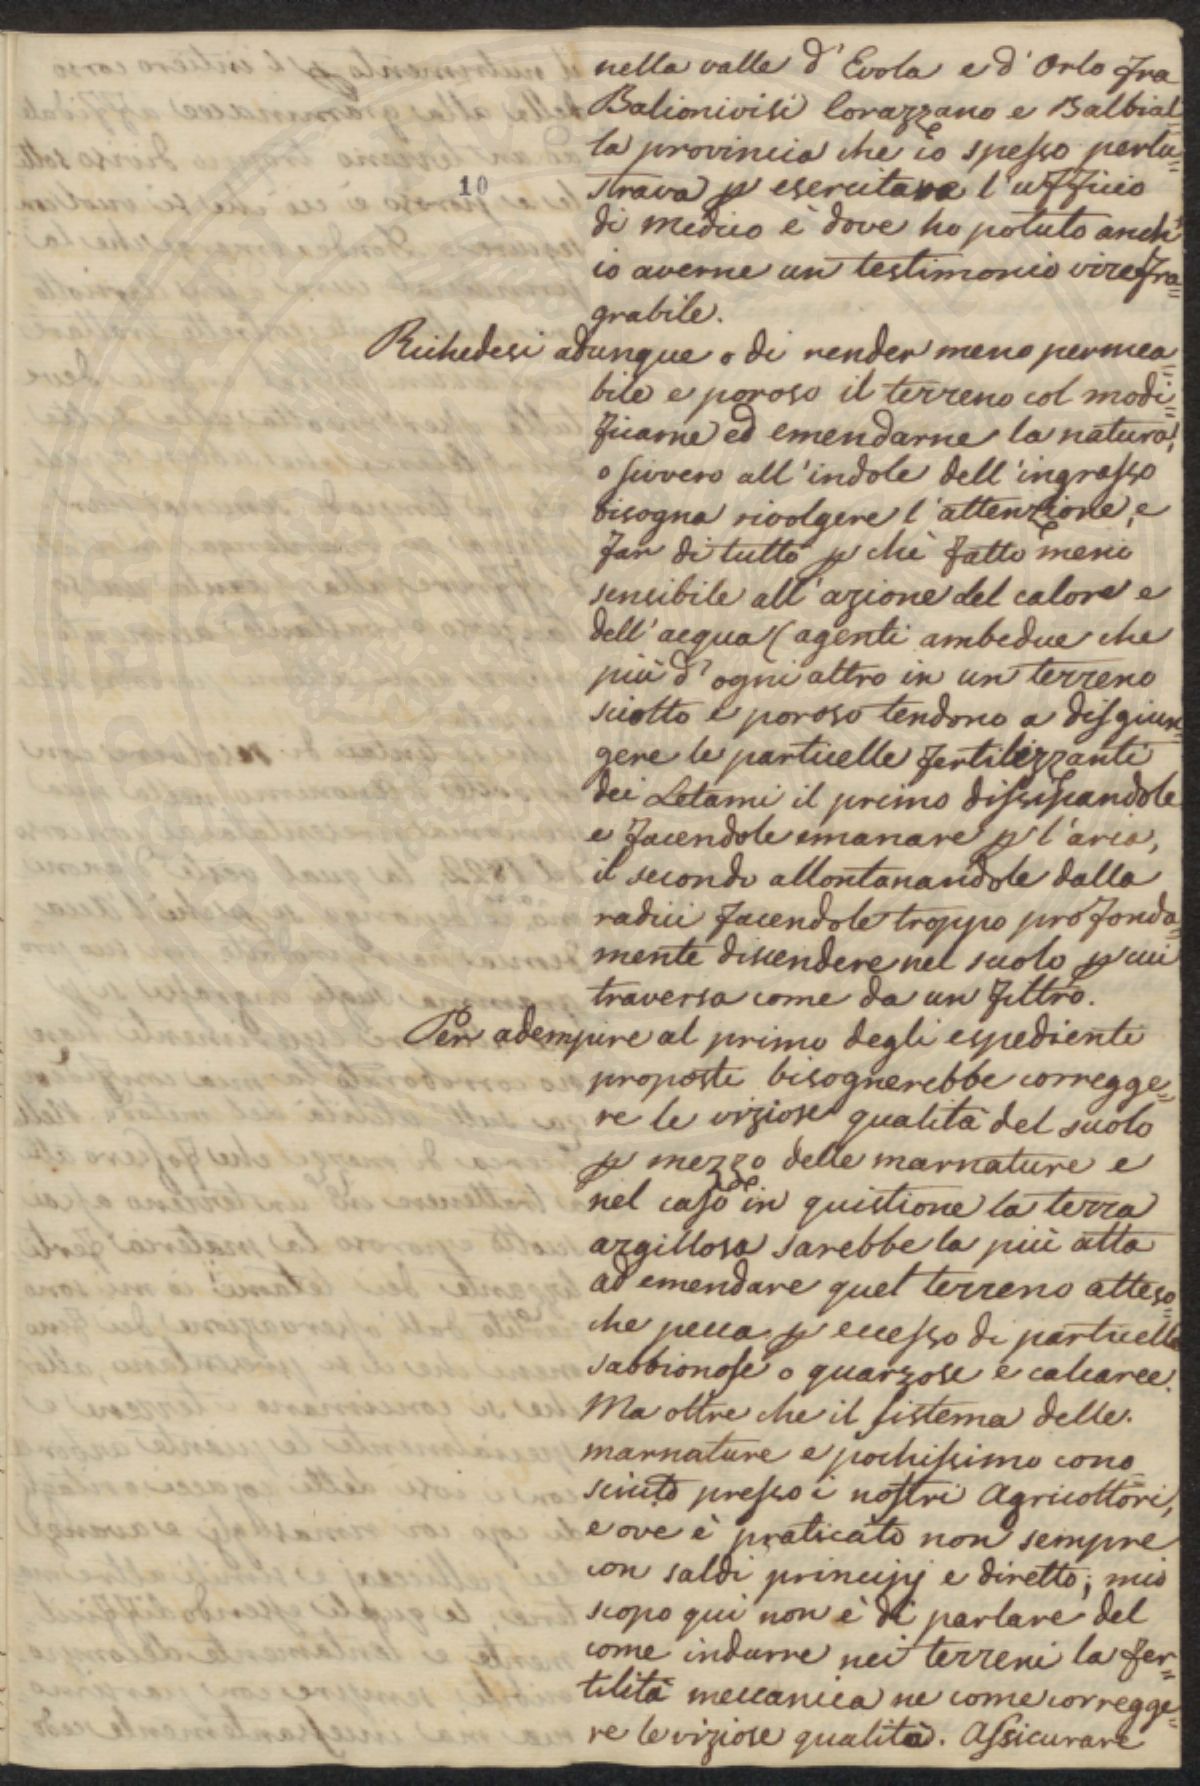 nella valle d'Evola e d'Orlo fra
Balionivisi Corazzano e Balbial
la provincia che io spesso perlu=
10
strava p esercitare l'ufficio
di medico e dove ho potuto anch'
io averne un testimonio virefra=
grabile.
Richedesi adunque o di render meno permea=
bile e poroso il terreno col modi=
ficarne ed emendarne la natura,
o sivvero all'indole dell'ingrasso
bisogna rivolgere l'attenzione, e
far di tutto p chè fatto meno
sensibile all'azione del calore e
dell'acqua (agenti ambedue che
più d'ogni altro in un terreno
sciolto e poroso tendono a disgiun=
gere le particelle fertilizzanti
dei Letami il primo dissipandole
e facendole emanare p l'aria,
il secondo allontanandole dalla
radici facendole troppo profonda=
mente discendere nel suolo p cui
traversa come da un filtro.
Per adempire al primo degli espedienti
proposti bisognerebbe corregge=
re le viziose qualità del suolo
p mezzo delle marnature e
nel caso in quistione la terra
argillosa sarebbe la più atta
ad emendare quel terreno atteso=
che pecca p eccesso di particelle
sabbionose o quarzose e calcaree.
Ma oltre che il sistema delle
marnature e pochissimo cono=
sciuto presso i nostri Agricoltori,
e ove è praticato non sempre
con saldi principj e diretto; mio
scopo qui non è di parlare del
come indurre nei terreni la fer=
tilità meccanica ne come corregge=
re le viziose qualità. Assicurare